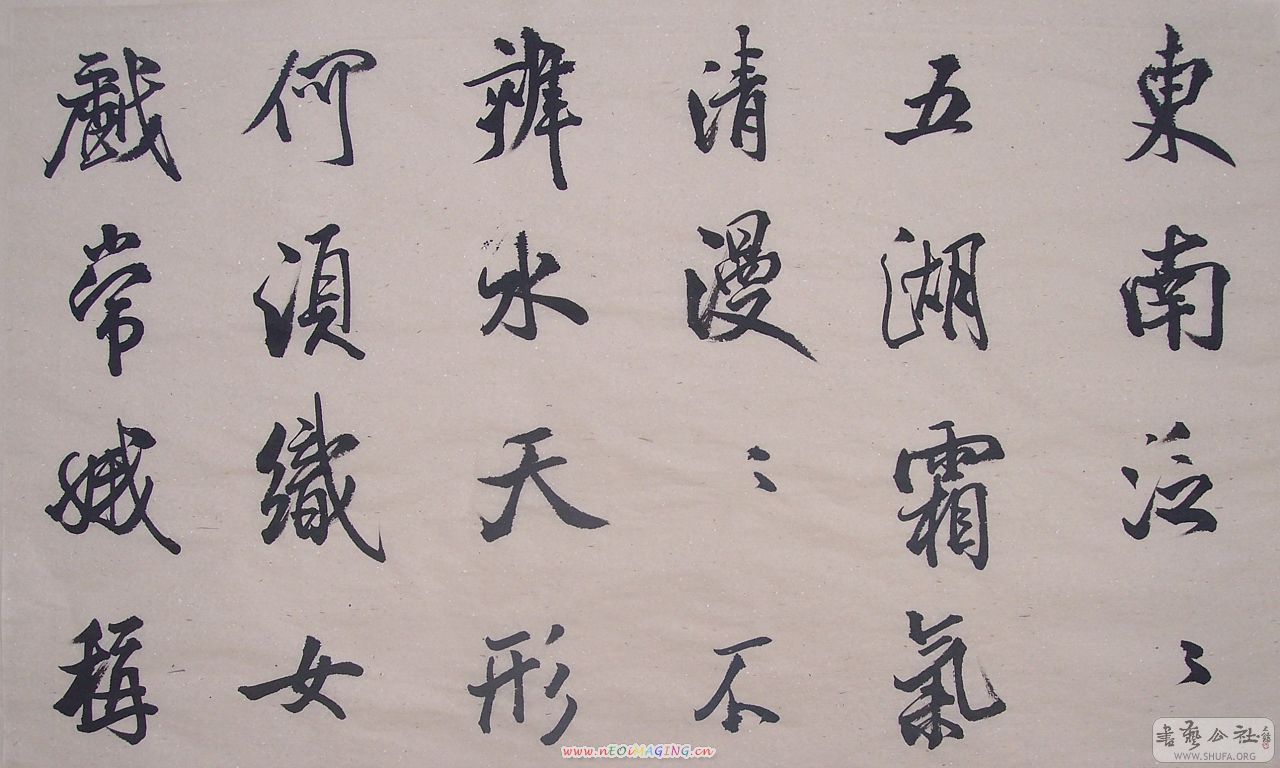 東南泛〻
五湖霜氣
清漫〻不
辨水天形
何須織女
戲常娥稱
www.nEOiMAGING.cn
書藝公社
WWW.SHUFA.ORG